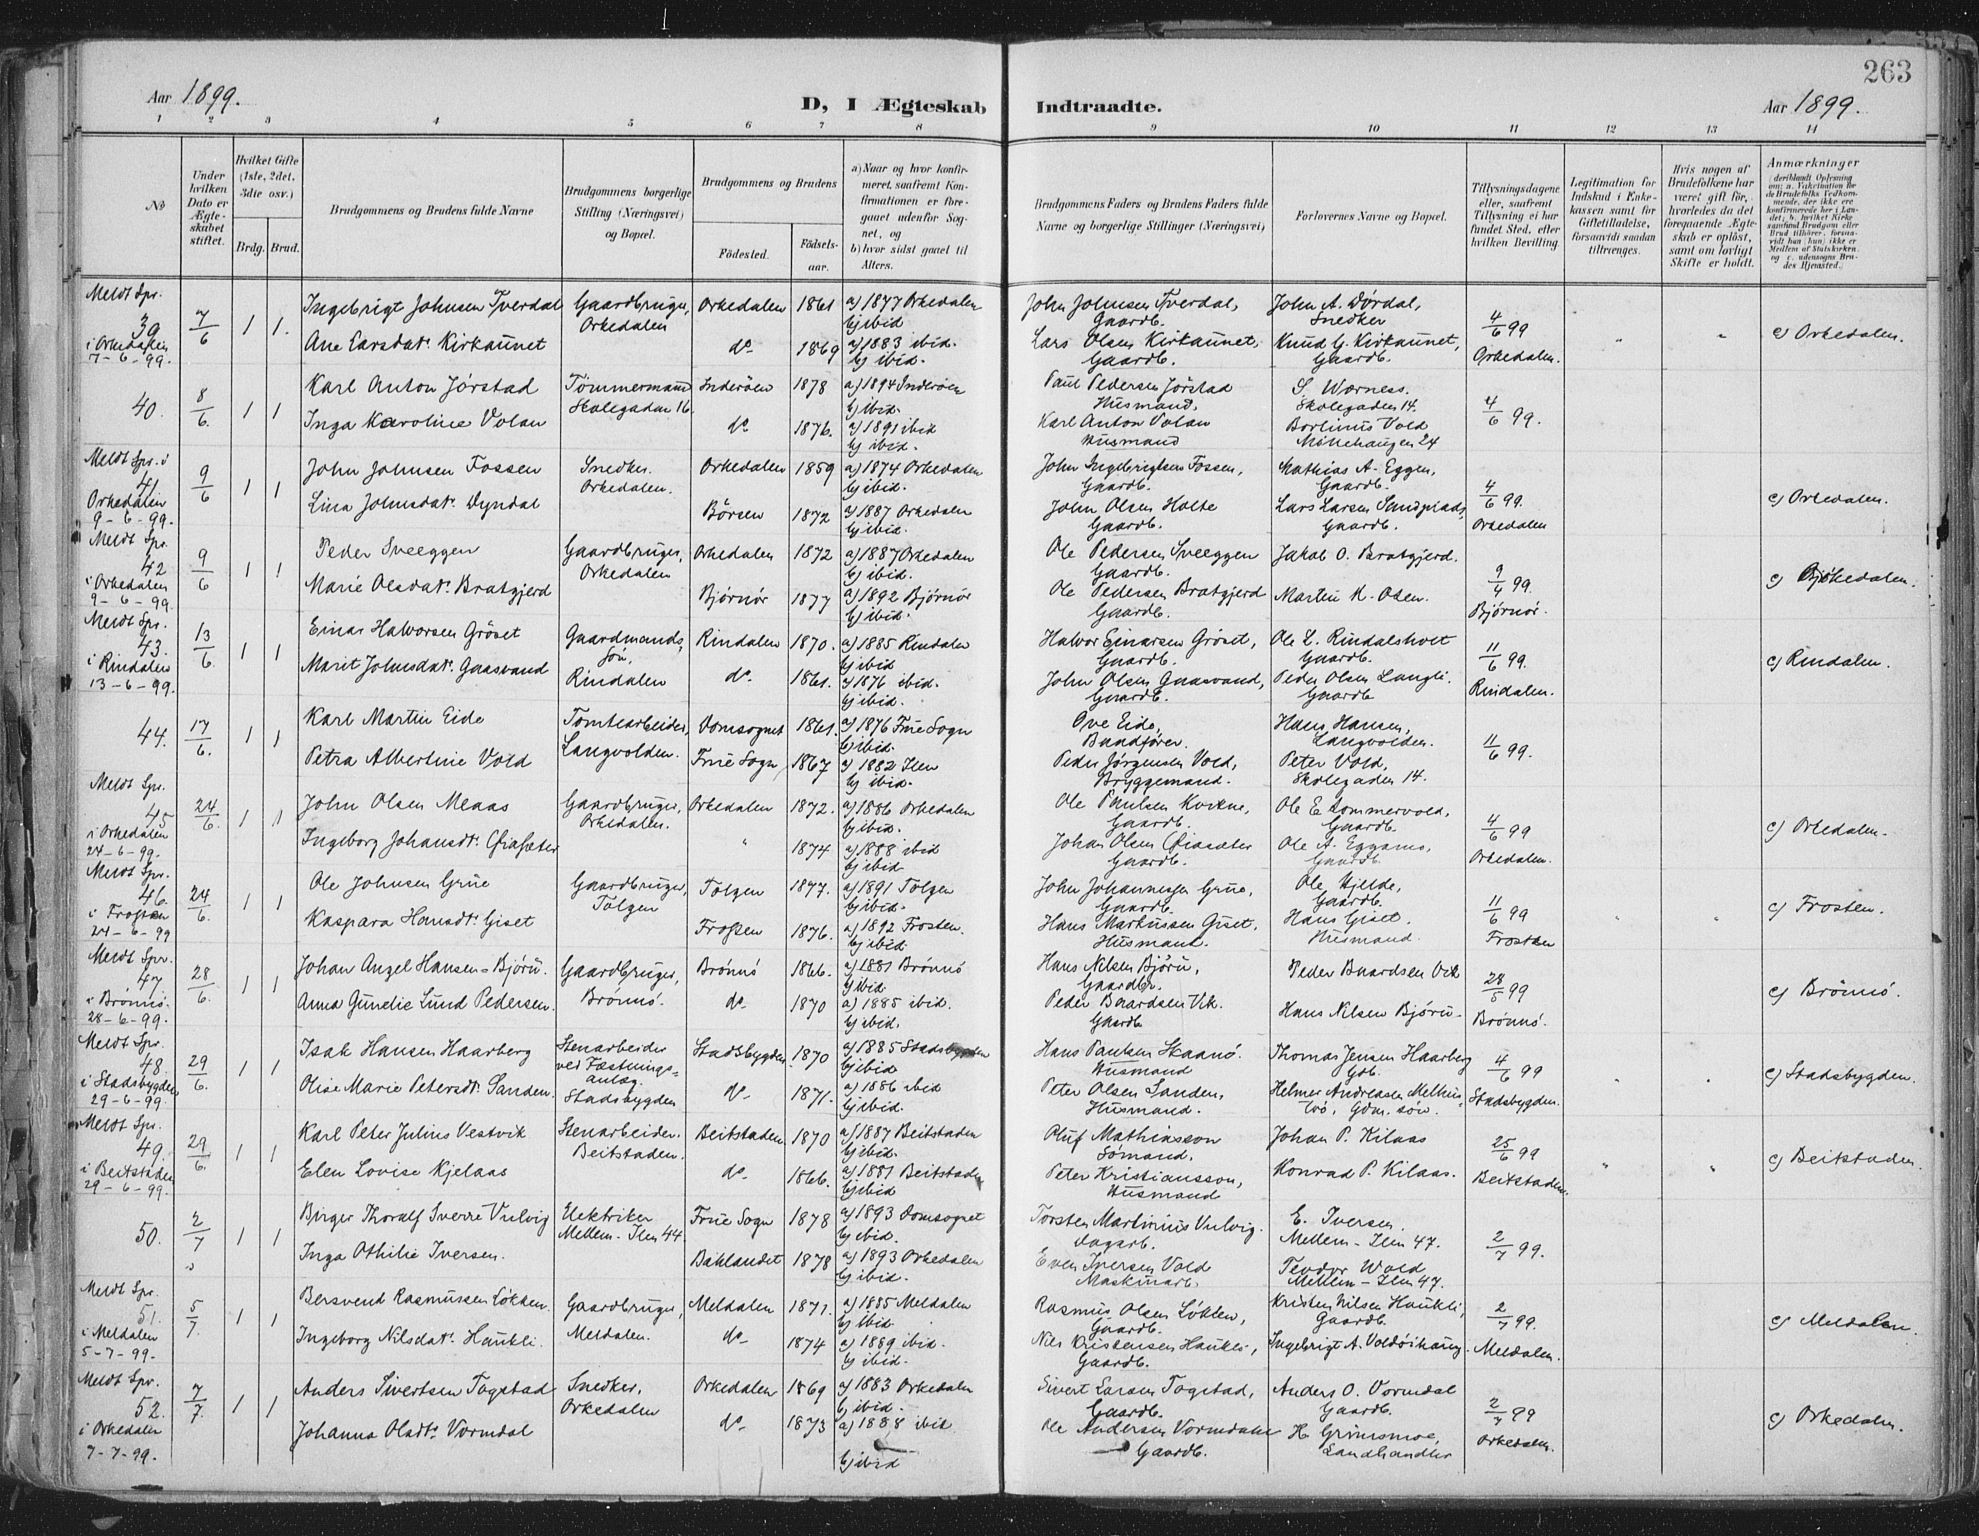 263
Aar 1899.
D, I Ægteskab Indtraadte.
Aar 1899.
1 2 3 4 5 6 7 8 9 10 11 12 13 14
No
Under hvilken Dato er Ægteskabet stiftet.
Hvilket Gifte (1ste, 2det, 3die osv.)
Brdg. Brud.
Brudgommens og Brudens fulde Navne
Brudgommens borgerlige Stilling (Næringsvei) og Bopæl.
Brudgommens og Brudens
Födested. Födsels-aar.
a) Naar og hvor konfirmeret, saafremt Konfirmationen er foregaaet udenfor Sognet, og
b) hvor sidst gaaet til Alters.
Brudgommens Faders og Brudens Faders fulde Navne og borgerlige Stillinger (Næringsvei)
Forlovernes Navne og Bopæl.
Tillysningsdagene eller, saafremt Tillysning ei har fundet Sted, efter hvilken Bevilling
Legitimation for Indskud i Enkekassen samt for Giftetilladelse, forsaavidt saadan tiltrænges.
Hvis nogen af Brudefolkene har været gift för, hvorledes da det foregaaende Ægteskab er oplöst, samt om lovligt Skifte er holdt.
Anmærkninger
Meldt Spr. 39 i Orkedalen 7-6-99.
7/6 1 1.
Ingebrigt Johnsen Tverdal Gaardbruger, Orkedalen Orkedalen 1861 a) 1877 Orkedalen b) ibid
Ane Larsdatr. Kirkaunet do 1869 a) 1883 ibid. b) ibid.
John Johnsen Tverdal, Gaardb. John A. Dørdal, Snedker
Lars Olsen Kirkaunet, Gaardb. Knud G. Kirkaunet, Gaardb.
4/6 99 Orkedalen. c) Orkedalen.
40. 8/6. 1 1
Karl Anton Jørstad Tømmermand Skolegaden 16 Inderøen 1878 a) 1894 Inderøen b) ibid.
Inga Karoline Volan do 1876. a) 1891 ibid b) ibid.
Paul Pedersen Jørstad Husmand, S. Wærness. Skolegaden 14.
Karl Anton Volan Husmand Borlinus Vold Møllehaugen 24
4/6 99.
Meldt Spr. i 41. Orkedalen 9-6-99.
9/6 1 1
John Johnsen Fossen Snedker. Orkedalen. Orkedalen 1859 a) 1874 Orkedalen b) ibid.
Lina Johnsdatr. Dyndal Börsen 1872 a) 1887 Orkedalen b) ibid.
John Ingebrigtsen Fossen, Gaardb. Mathias A. Eggen, Gaardb.
John Olsen Holte Gaardb. Lars Larsen Gaardb.
4/6 99. Orkedalen c) Orkedalen.
Meldt Spr. 42 i Orkedalen 9-6-99.
9/6 1 1
Peder Sveeggen Gaardbruger, Orkedalen Orkedalen 1872 a) 1887 Orkedalen b) ibid.
Marie Olsdatr. Bratgjerd Bjørnør 1877 a) 1892 Bjørnør b) ibid.
Ole Pedersen Sveeggen Gaardb. Jakob O. Bratgjerd.
Ole Pedersen Bratgjerd Gaardb. Martin K. Osen.
9/4 99. Bjørnör. c)
Meldt Spr. 43. i Rindalen 13-6-99.
13/6 1 1
Einar Halvorsen Gröset Gaardmands Sön, Rindalen Rindalen 1870. a) 1885 Rindalen b) ibid
Marit Johnsdatr. Gaasvand do. 1861. a) 1876 ibid. b) ibid.
Halvor Einarsen Gröset, Gaardb. Ole L. Rindalsholt Gaardb.
John Olsen Gaasvand, Gaardb. Peder Olsen Langli. Gaardb
11/6 99. Rindalen. c) Rindalen.
44. 17/6. 1 1
Karl Martin Eide Tomtearbeider, Langvolden. Domsognet 1861. a) 1876 Frue Sogn b) ibid.
Petra Albertine Vold Frue Sogn 1867 a) 1882 Ilen b) ibid.
Ove Eide, Baadfører. Hans Hansen, Langvolden.
Peder Jørgensen Vold, Bryggemand. Peter Vold, Skolegaden 14.
11/6 99.
Meldt Spr. 45 i Orkedalen 24-6-99.
24/6. 1 1
John Olsen Meaas Gaardbruger, Orkedalen. Orkedalen 1872. a) 1886 Orkedalen b) ibid.
Ingeborg Johansdt. Öiasæter " 1874 a) 1888 ibid b) ibid.
Ole Paulsen Kvikne, Gaardb. Ole E. Sommervold, Gaardb.
Johan Olsen Öiasæter Gaardb. Ole A. Gaardb.
4/6 99 Orkedalen. c) Orkedalen.
Meldt Spr. 46. i Frosten 24-6-99
24/6. 1 1
Ole Johnsen Grue Gaardbruger, Tolgen Tolgen 1877. a) 1891 Tolgen b) ibid.
Kaspara Hansdt. Giset Frosten 1876. a) 1892 Frosten. b) ibid.
John Johannessen Grue, Gaardb. Ole Hjelde, Gaardb.
Hans Markussen Giset, Husmand. Hans Giset. Husmand.
11/6 99 Frosten c) Frosten.
Meldt Spr. 47. i Brönnö. 28-6-99.
28/6. 1 1
Johan Angel Hansen-Bjørn. Gaardbruger, Brönnö. Brönnö 1866. a) 1881 Brönnö b) ibid
Anna Gunelie Lund Pedersen. do 1870 a) 1885 ibid. b) ibid.
Hans Nilsen Bjørn, Gaardbr. Peder Baardsen Vik
Peder Baardsen Vik. Gaardb Hans Nilsen Bjørn.
28/5 99 Brönnö. c) Brönnö.
Meldt Spr. 48. i Stadsbygden 29-6-99.
29/6. 1 1
Isak Hansen Haarberg Stenarbeider ved Fæstnings-anlæg. Stadsbygden Stadsbygden 1870 a) 1885 Stadsbygden b) ibid.
Olise Marie Petersdt. Sanden. do 1871. a) 1886 ibid b) ibid.
Hans Paulsen Skaanö. Husmand Thomas Jensen Haarberg Gb.
Peter Olsen Sanden, Husmand. Helmer Andreassen Gdm. sön.
4/6 99 Stadsbygden. c) Stadsbygden.
Meldt Spr. 49. i Beitstaden 29-6-99.
29/6. 1 1
Karl Peter Julius Vestvik Stenarbeider. Beitstaden. Beitstaden 1870 a) 1887 Beitstaden b) ibid.
Elen Lovise Kjelaas do 1866. a) 1881 Beitstaden b) ibid
Oluf Mathiasson Sømand. Johan P. Kilaas
Peter Kristiansson, Husmand Konrad P. Kilaas.
25/6 99 Beitstaden. c) Beitstaden.
50. 2/7 1 1
Birger Thoralf Sverre Vulvig Elektriker Mellem-Ilen 44. Frue Sogn 1878 a) 1893 Domsognet b) ibid.
Inga Othilie Iversen. Baklandet 1878 a) 1893 Orkedalen b) ibid.
Torsten Martinius Vulvig. Dagarb. E. Iversen. Mellem-Ilen 47.
Even Iversen Vold Maskinarb. Teodor Wold Mellem-Ilen 47.
2/7 99.
Meldt Spr. 51. i Meldalen 5-7-99.
5/7. 1 1
Bersvend Rasmussen Løkken. Gaardbruger, Meldalen. Meldalen 1871. a) 1885 Meldalen b) ibid
Ingeborg Nilsdatr. Haukli. do 1874 a) 1889 ibid. b) ibid.
Rasmus Olsen Løkken, Gaardb. Kristen Nilsen Haukli, Gaardb.
Nils Kristensen Haukli, Gaardb. Ingebrigt A. Voldöihaug.
2/7 99. Meldalen. c) Meldalen.
Meldt Spr. 52. i Orkedalen 7-7-99.
7/7. 1 1
Anders Sivertsen Togstad Snedker, Orkedalen Orkedalen 1869 a) 1883 Orkedalen b) ibid.
Johanna Olsdt. Vormdal do. 1873 a) 1888 ibid. b) ibid
Sivert Larsen Togstad, Gaardb. Anders O. Vormdal Gaardb.
Ole Andersen Vormdalen Gaardb. H. Grimsmoe, Landhandler
2/7 99 Orkedalen. c) Orkedalen.